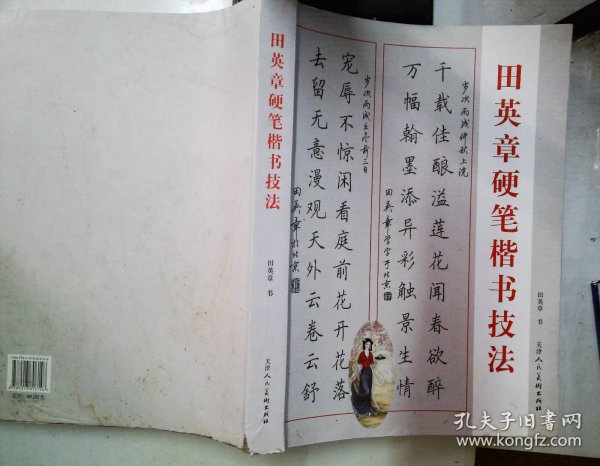 田英章硬笔楷书技法
田英章 书
天津人民美术出版社
千载佳酿溢莲花闻春欲醉
万幅翰墨添异彩触景生情
岁次丙戌仲秋上浣
田英章学字于北京
宠辱不惊闲看庭前花开花落
去留无意漫观天外云卷云舒
岁次丙戌立冬前三日
田英章于北京
田英章硬笔楷书技法
田英章 书
天津人民美术出版社
孔夫子旧书网
www.kongfz.com